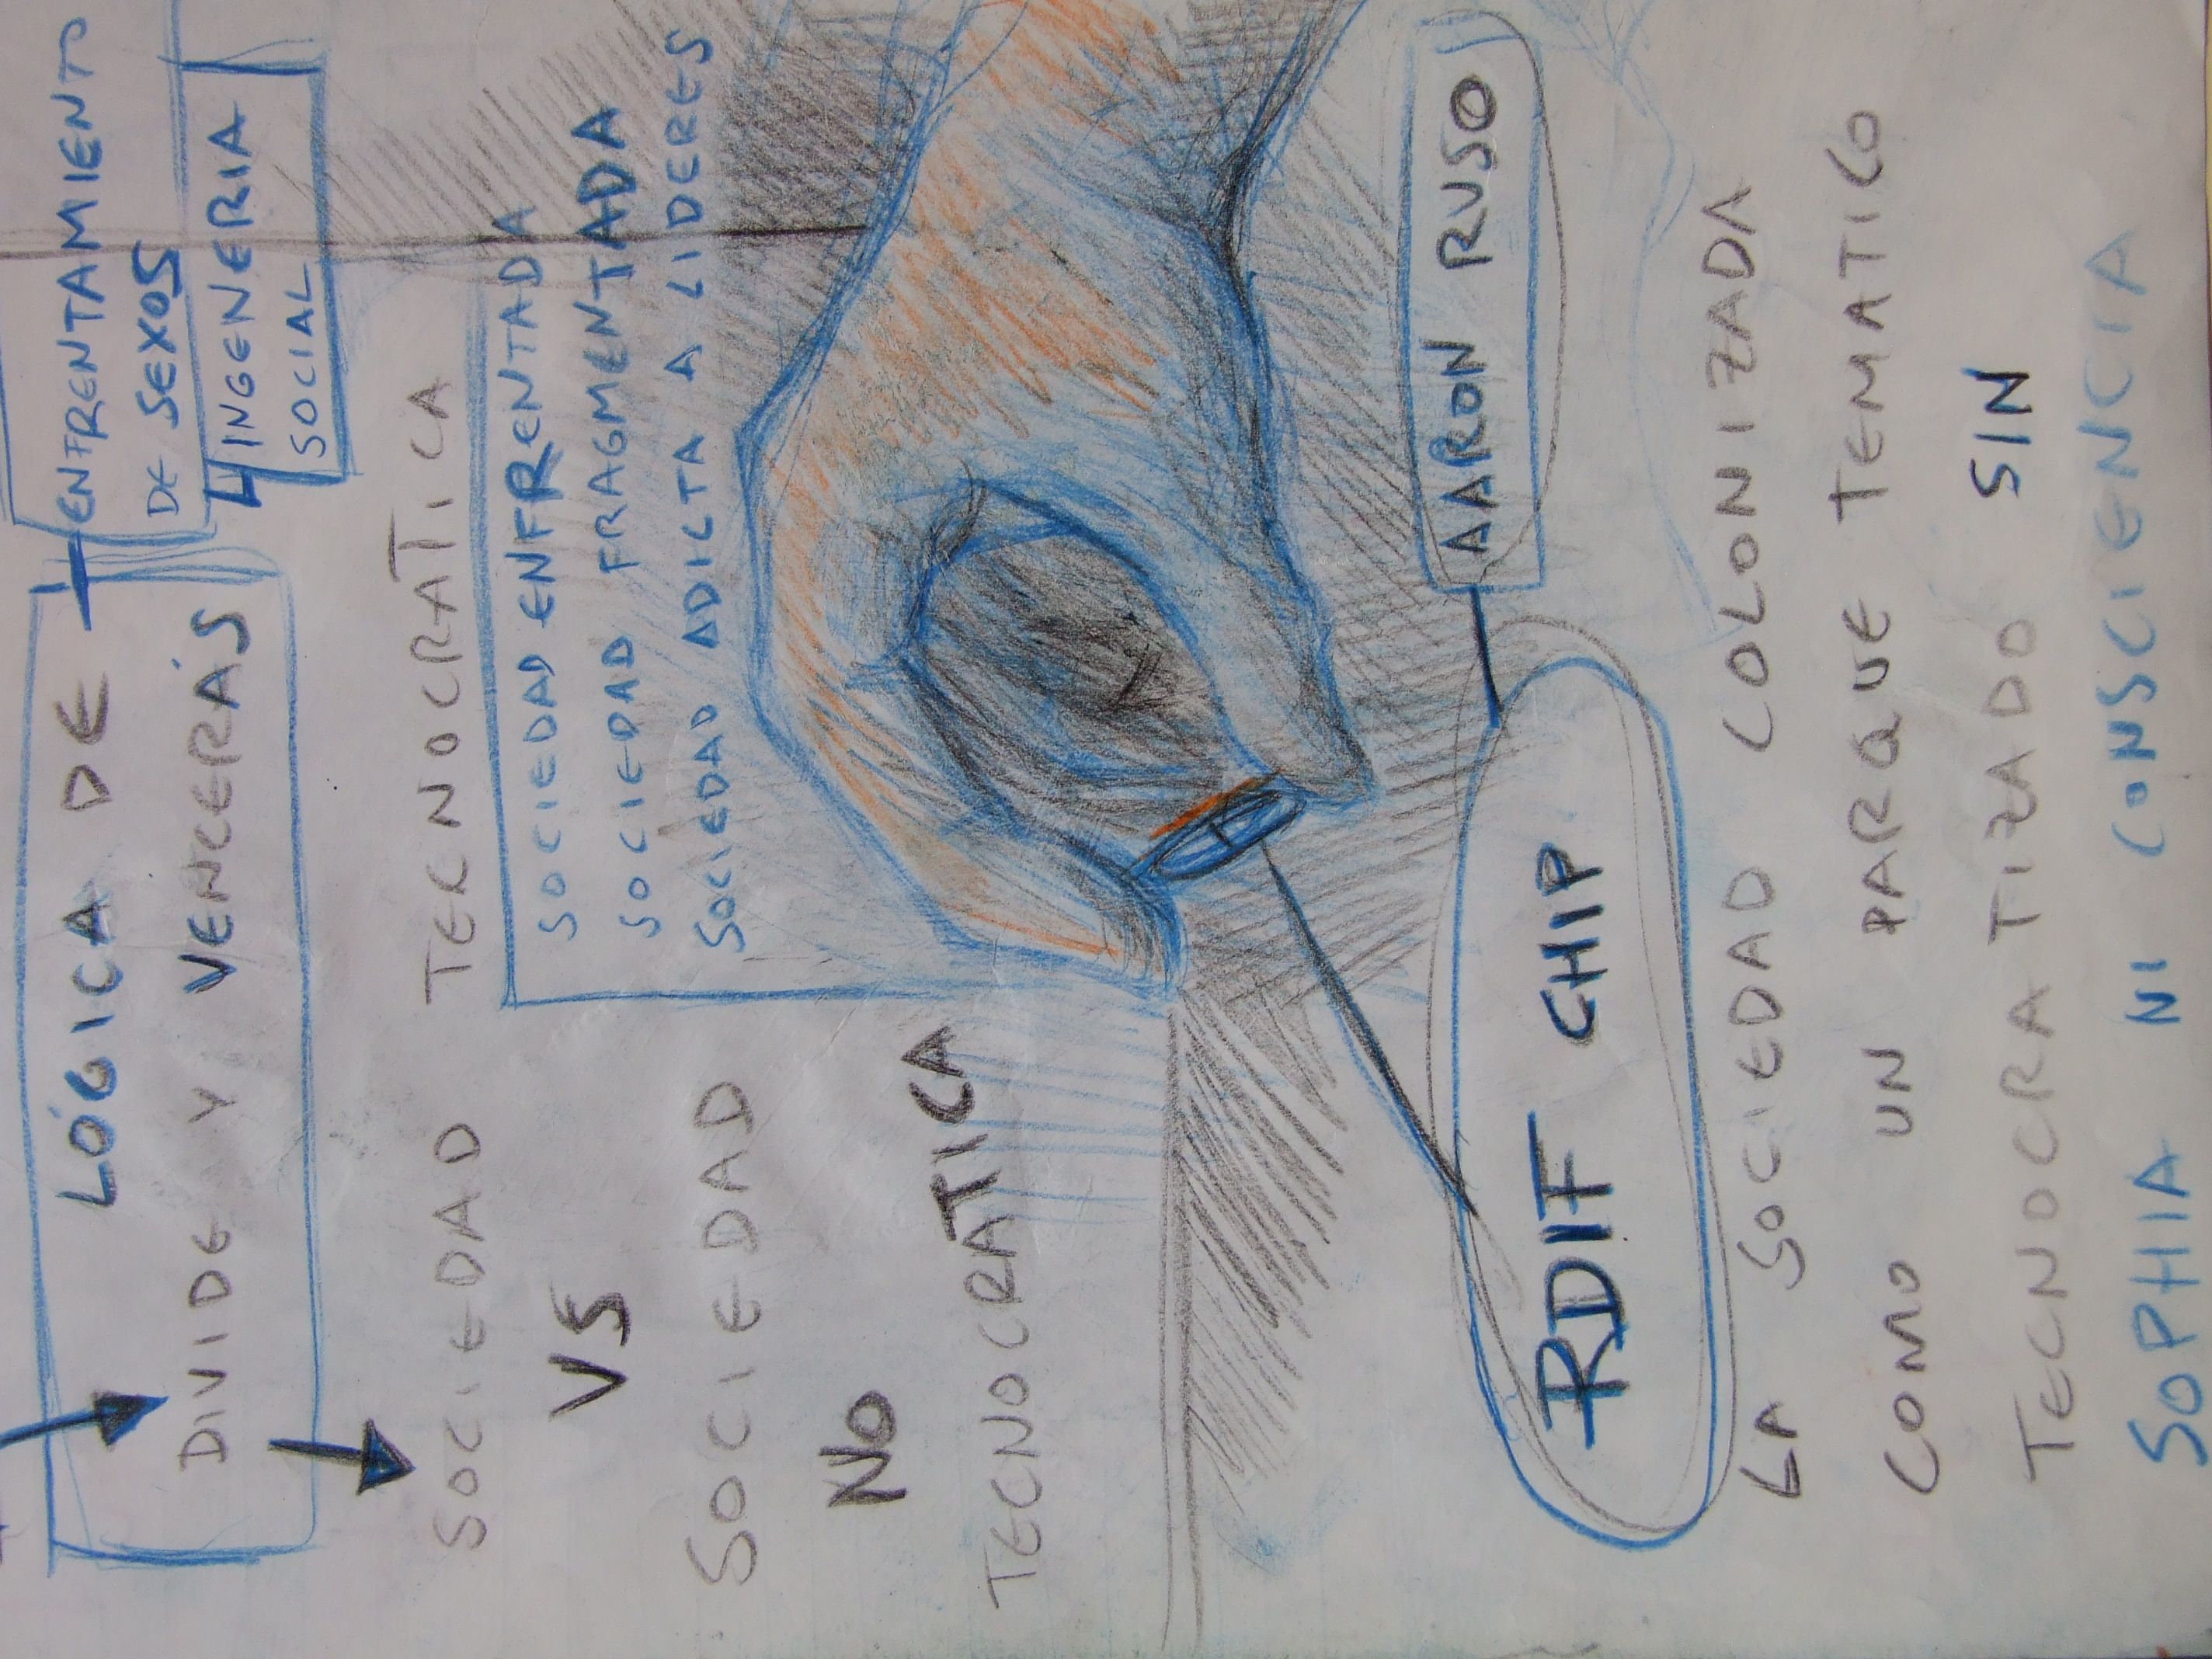 LÓGICA DE
DIVIDE Y VENCERÁS
ENFRENTAMIENTO
DE SEXOS
INGENERIA
SOCIAL
SOCIEDAD TECNOCRATICA
VS
SOCIEDAD
NO
TECNOCRATICA
SOCIEDAD ENFRENTADA
SOCIEDAD FRAGMENTADA
SOCIEDAD ADICTA A LIDERES
RDIF CHIP
AARON RUSO
LA SOCIEDAD COLONIZADA
COMO UN PARQUE TEMATICO
TECNOCRATIZADO SIN
SOPHIA NI CONSCIENCIA